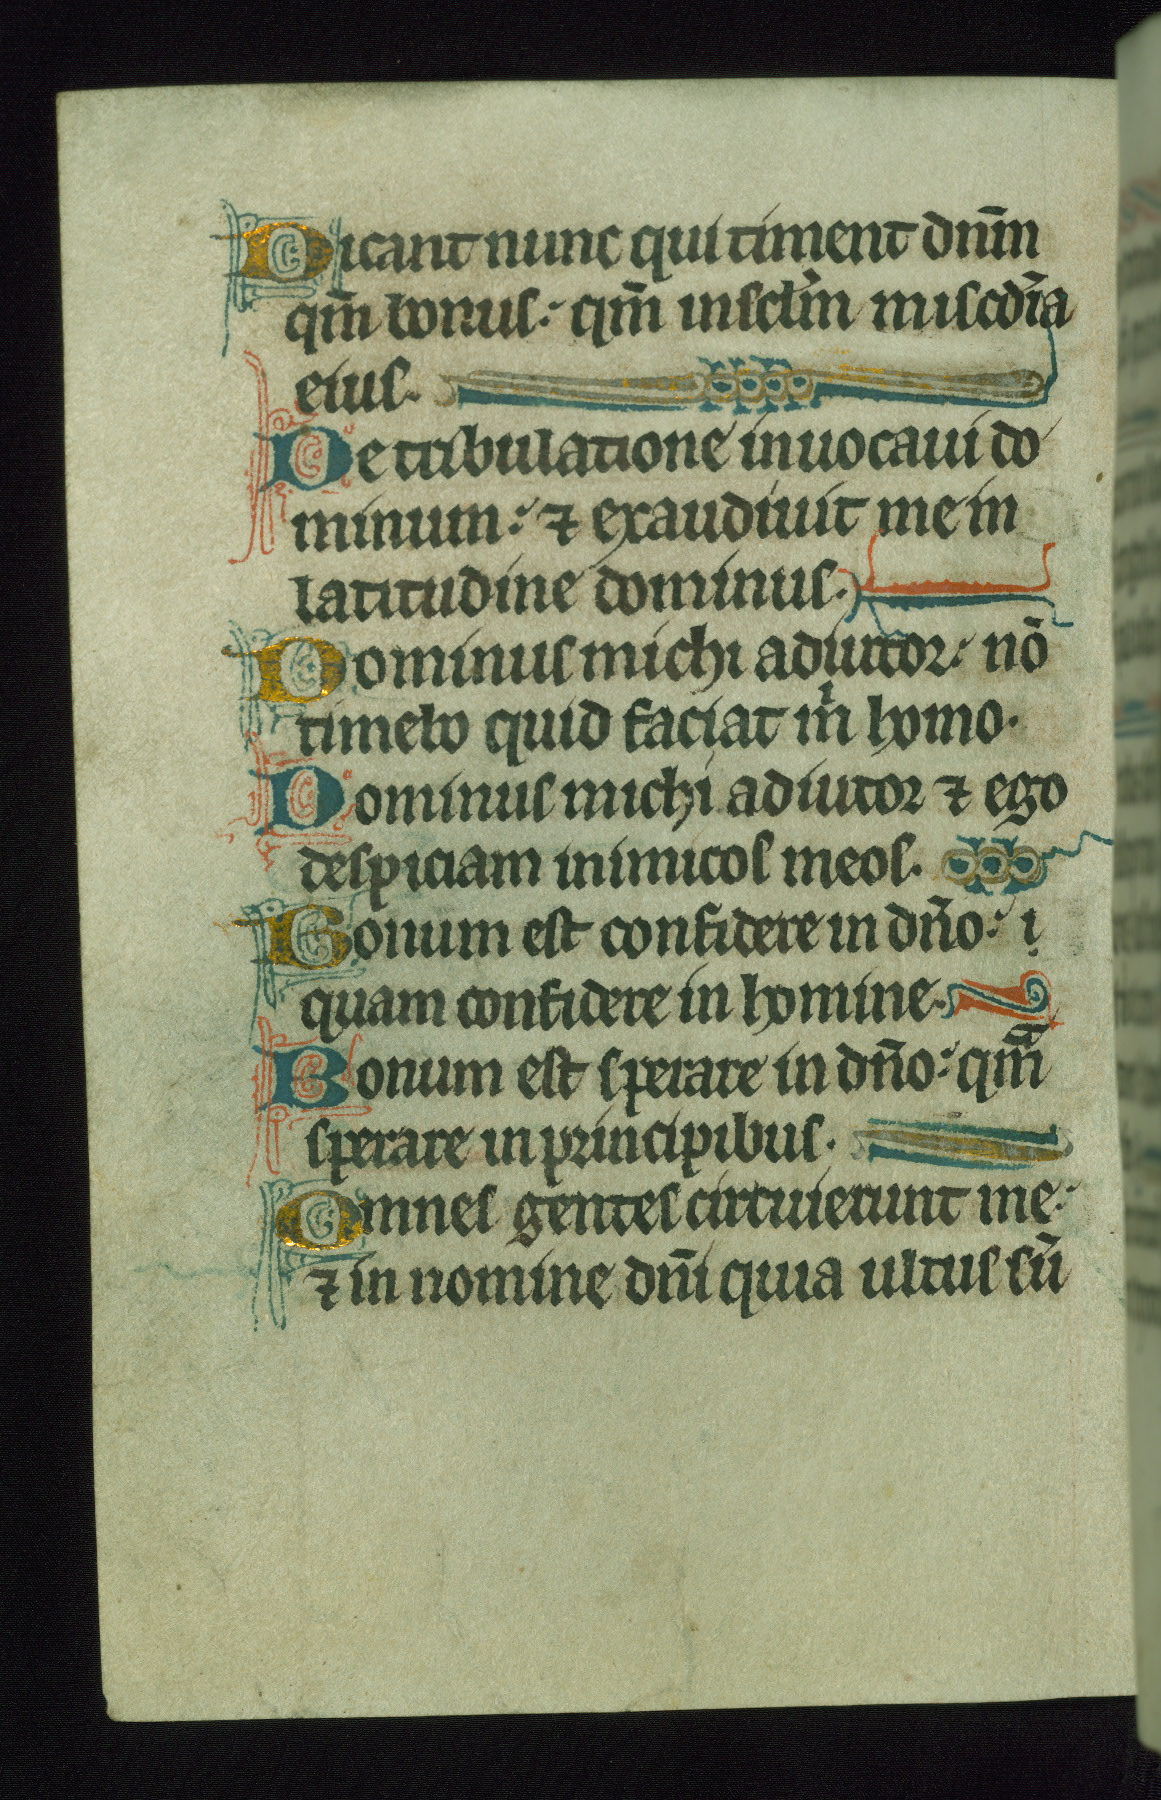 Dicant nunc qui timent dnm̄
qm̄ bonus: qm̄ in sclm̄ miscdīa
eius.
De tribulatione inuocaui do
minum: ⁊ exaudiuit me in
latitudine dominus.
Dominus michi adiutor: nō
timebo quid faciat mͥ homo.
Dominus michi adiutor ⁊ ego
despiciam inimicos meos.
Bonum est confidere in dn̄o:
quam confidere in homine.
Bonum est sperare in dn̄o: qm̄ᷓ
sperare in principibus.
Omnes gentes circuierunt me:
⁊ in nomine dnī quia ultus sū